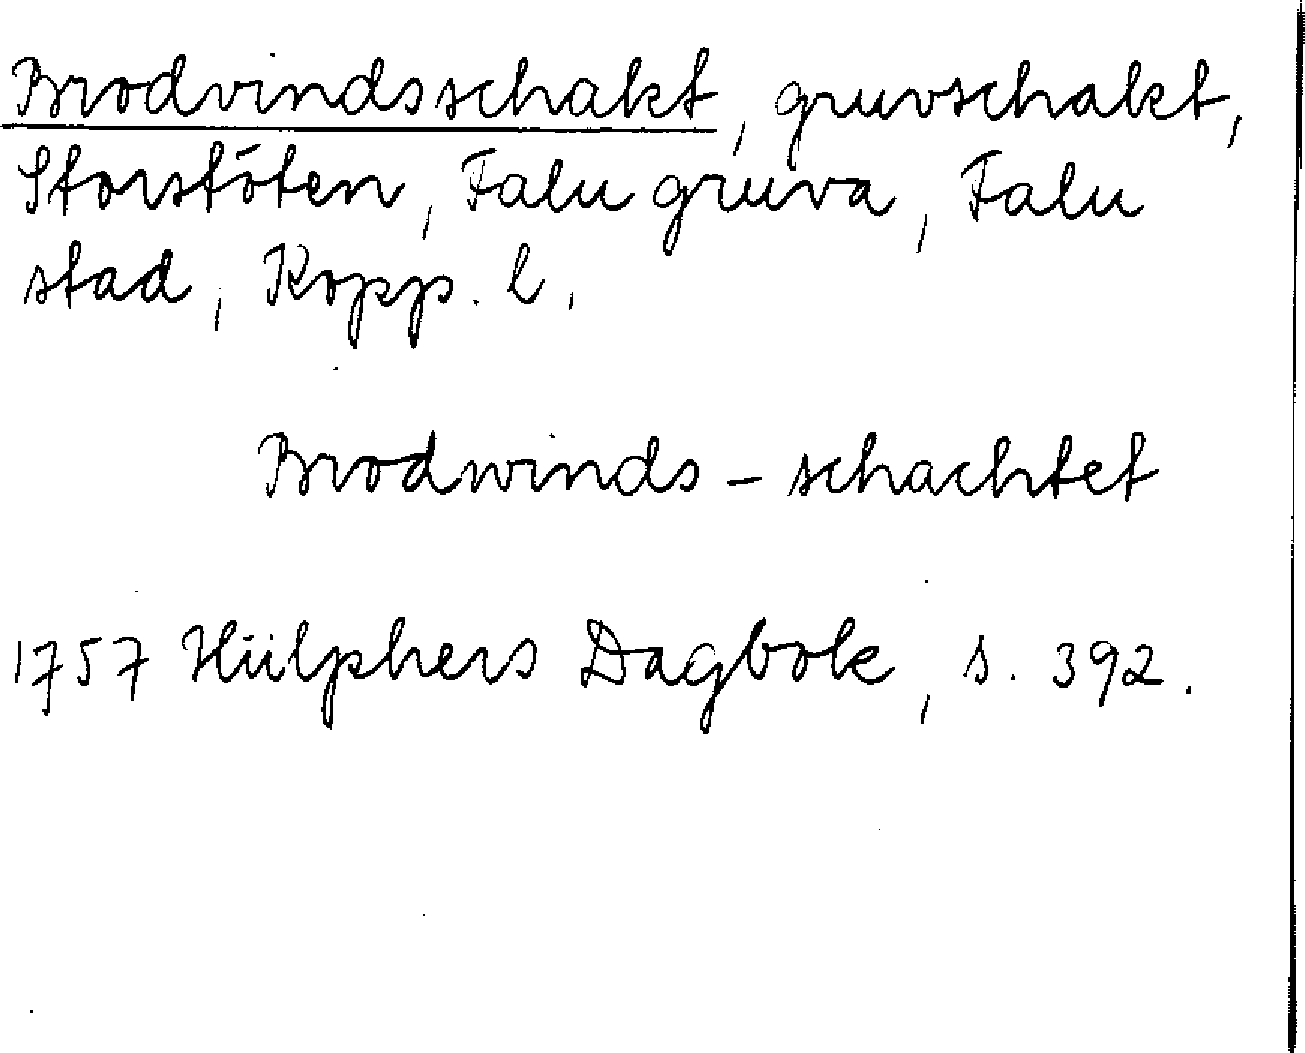 Brodvindsschakt, gruvschakt,
Storstöten, Falu gruva, Falu
stad, Kopp. l.
Brodwinds-schachtet
1757 Hülphers Dagbok, s. 392.